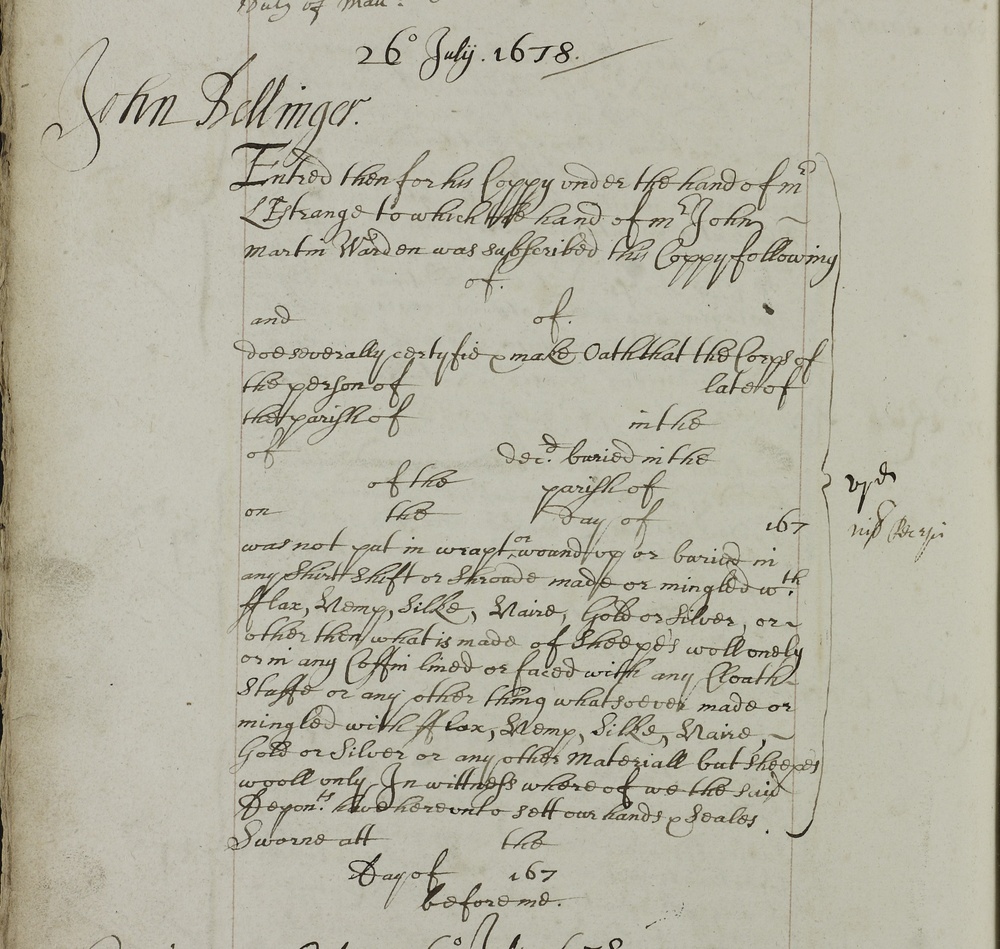 Duty of Man.
26° July. 1678.
John Bellinger.
Entred then for his Coppy under the hand of mr
L'Estrange to which the hand of mr John
Martin Warden was subscribed this Coppy following
of.
and of.
doe severally certyfie & make Oath that the Corps of
the person of late of
the parish of in the
of decd. buried in the
of the parish of
on the day of 167
was not put in wrapt or wound up or buried in
any Shirt Shift or Shroude made or mingled wth.
fflax, Hemp, Silke, Haire, Gold or Silver, or
other then what is made of Sheepe's wooll onely
or in any Coffin lined or faced with any Cloath
Stuffe or any other thing whatsoever made or
mingled with fflax, Hemp, Silke, Haire,
Gold or Silver or any other Materiall but sheepes
wooll only. In wittness where of we the said
Depon:ts have hereunto sett our hands & Seales.
Sworne att the
Day of 167
before me.
vjd